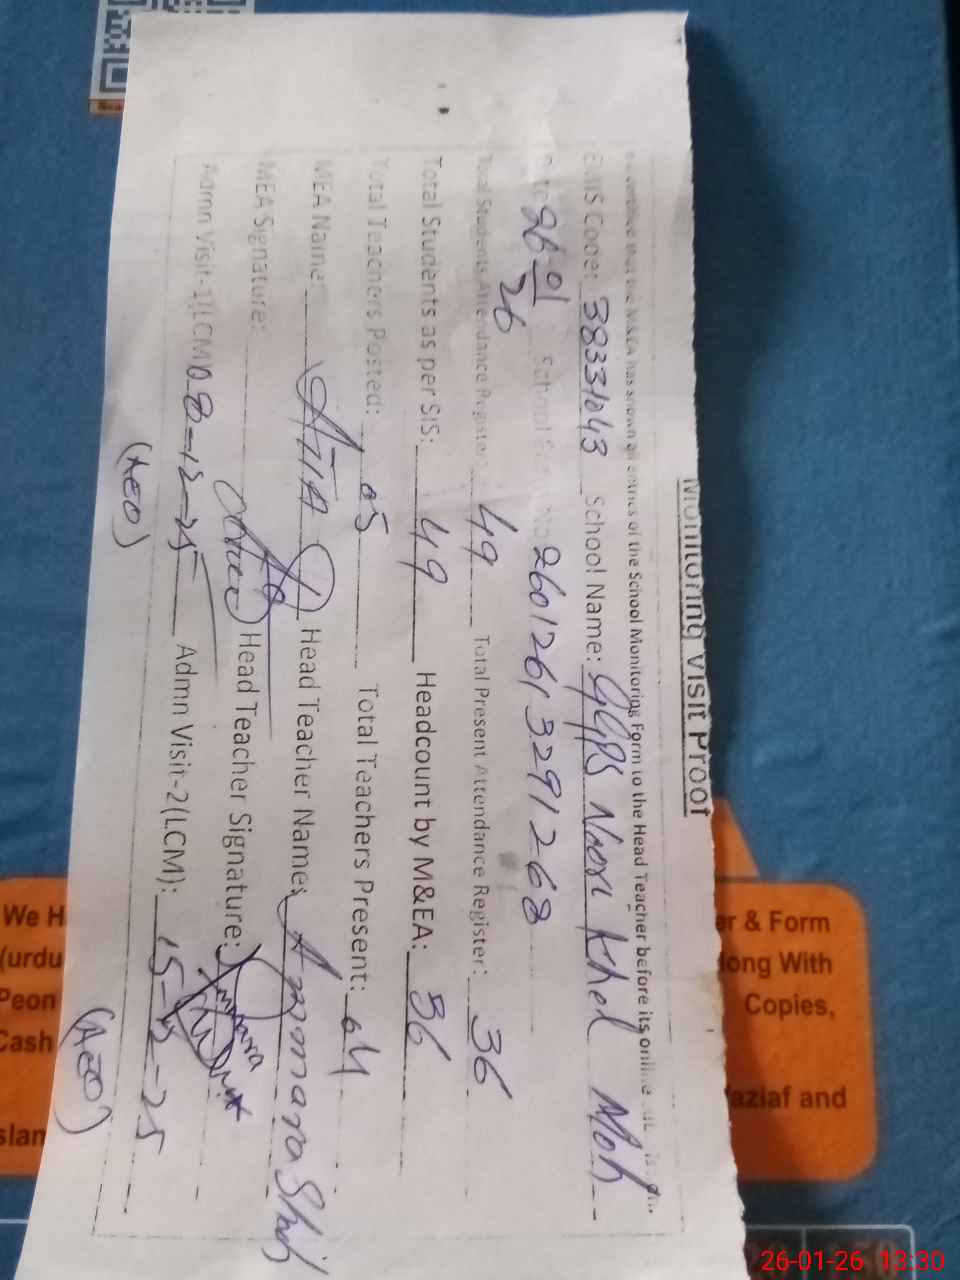 Monitoring Visit Proof
certified that the M&EA has shown all entries of the School Monitoring Form to the Head Teacher before its online
EMIS Code: 38331043 School Name: GGPS Naori Khel Moh
Date 26-01-26 School No 26012613291268
Total Students Attendance Register: 49 Total Present Attendance Register: 36
Total Students as per SIS: 49 Headcount by M&EA: 36
Total Teachers Posted: 05 Total Teachers Present: 04
MEA Name: Head Teacher Name: Ammara Shah
MEA Signature: Head Teacher Signature:
Admn Visit-1(LCM) 08-12-25 Admn Visit-2(LCM): 15-12-25
(AEO) (AEO)
We H
(urdu
Peon
Cash
slan
er & Form
long With
Copies,
aziaf and
26-01-26 13:30